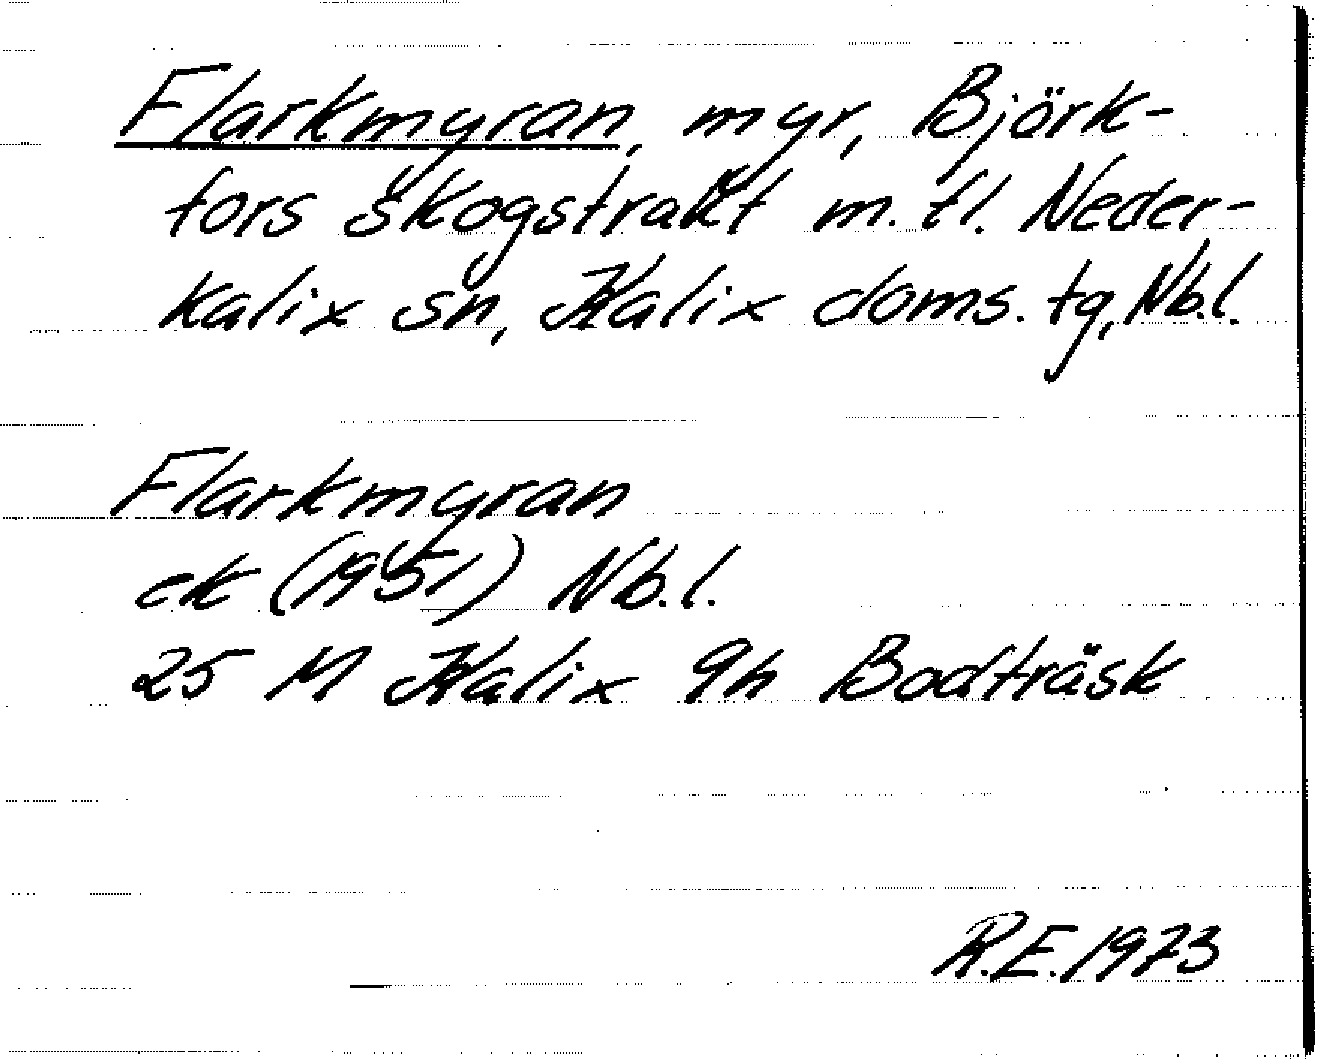 Flarkmyran, myr, Björk-
fors skogstrakt m. fl. Neder-
kalix sn, Kalix doms. tg, Nb.l.
Flarkmyran
ek (1951) Nb.l.
25 M Kalix 9h Bodträsk
R.E. 1973